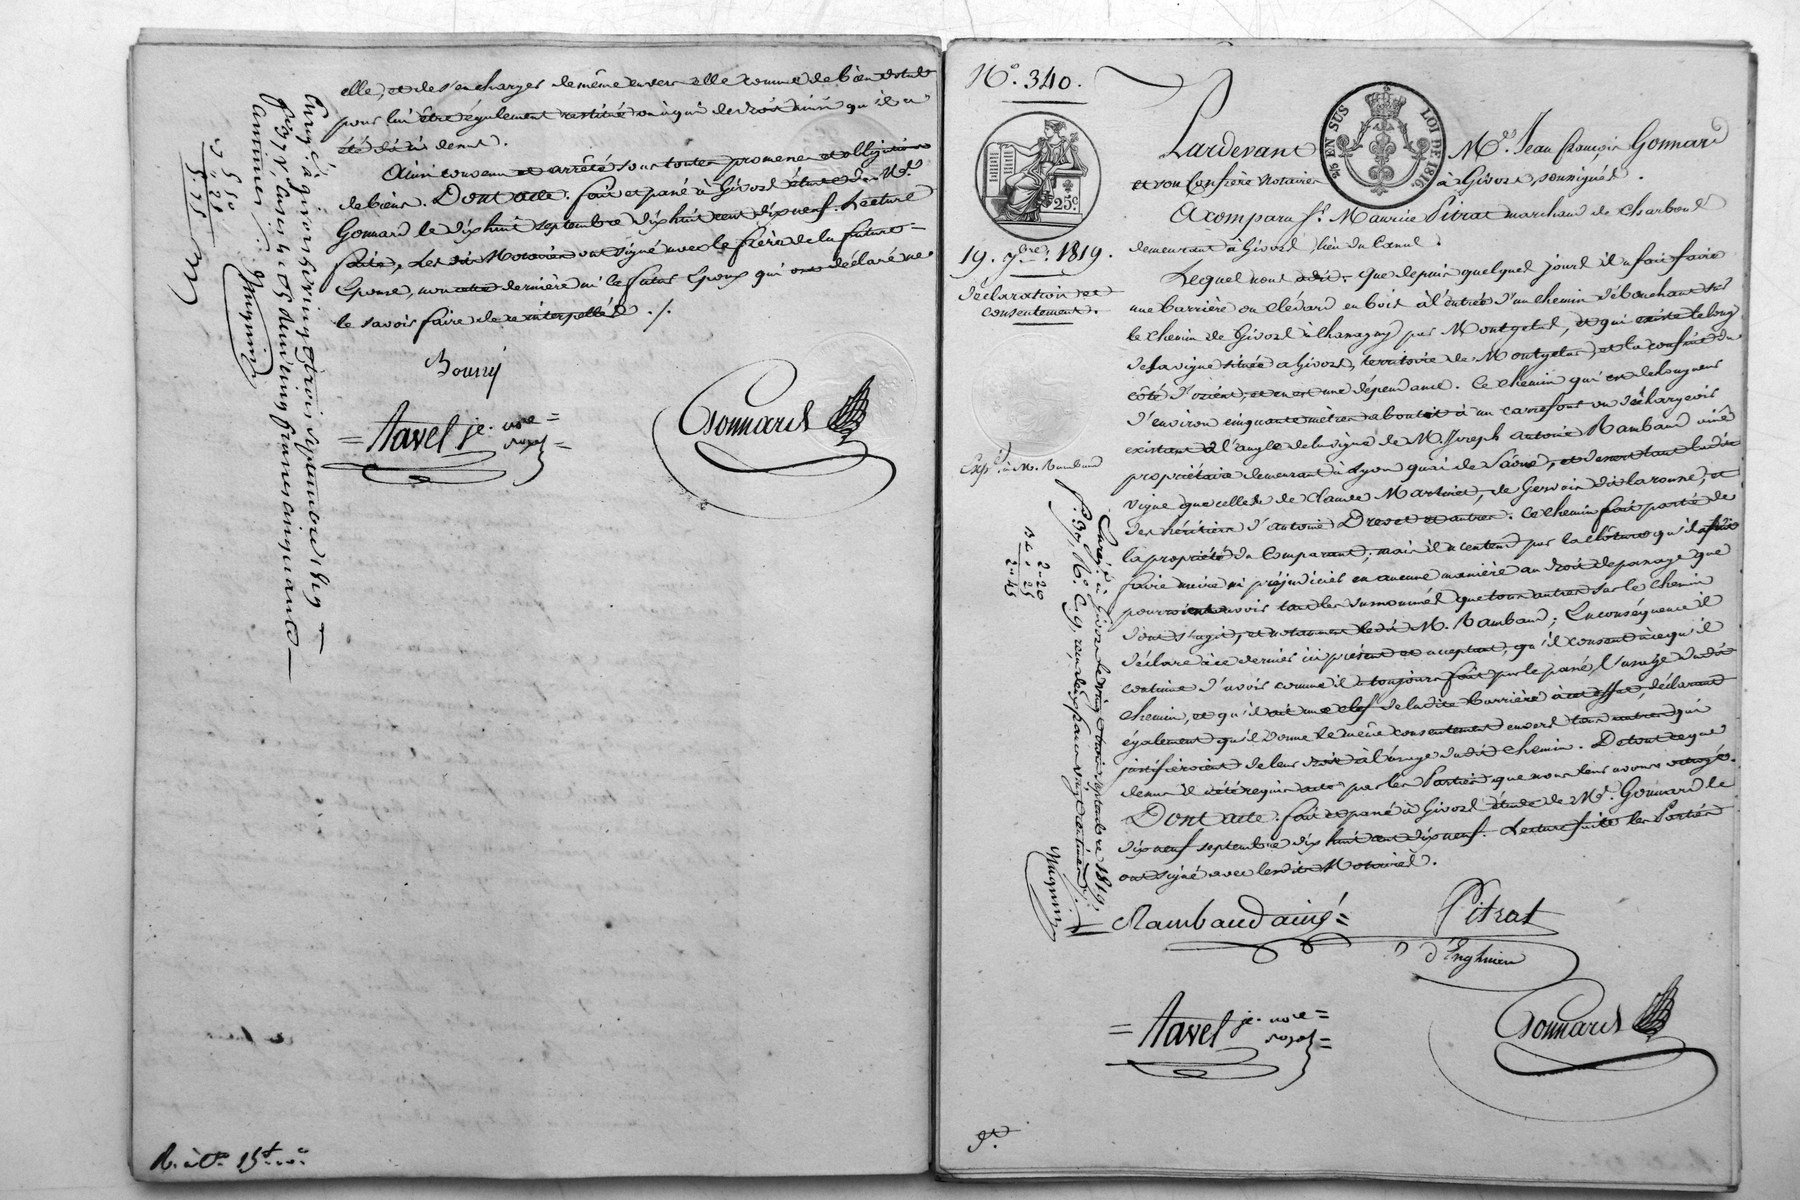 elle, et de s'en charger de même envers elle comme de bien dotal
pour lui être également restitué ou à qui de droit ainsi qu'il a
été dit ci dessus.
Ainsi convenu et arrêté sous toutes promesses et obligations
de biens. Dont acte. fait et passé à Givors étude de Me.
Gonnard le dix huit septembre dix huit cent dix neuf. Lecture
faite, Les dits Notaires ont signé avec le frère de la future
Epouse, non cette dernière ni le futur Epoux qui ont déclaré ne
le savoir faire de ce interpellés ./.
Bourry
= Tavel je. nore =
royal =
Gonnard
Enreg.é à givors le vingt trois septembre 1819
cinq francs cinquante
Mugnier
5 50
" 25
5,75
R. à
N°. 340.
25c
19. 7bre. 1819.
Déclaration et
consentement.
Expé. à M. Rambaud
EN SUS LOI DE 1816.
Pardevant Me. Jean françois Gonnard
et son Confrère Notaires à Givors, soussignés.
A comparu Sr. Maurice Pitrat marchand de charbons
demeurant à Givors, lieu du Canal.
Lequel nous a dit. Que depuis quelques jours il a fait faire
une barrière ou cledard en bois à l'entrée d'un chemin débouchant sur
le chemin de Givors à Chassagny par Montgelas, et qui existe le long
de la vigne située à Givors, territoire de Montgelas, et la confine du
côté d'orient, et en est une dépendance. Ce chemin qui est de longueur
d'environ cinquante mètres aboutit à un carrefour ou déchargeoir
existant à l'angle de la vigne de M. Joseph antoine Rambaud aîné
propriétaire demeurant à Lyon quai de Saône, et dessert tant ladite
vigne que celles de Claude Martinet, de Gervais Delaronne, et
des héritiers d'antoine Drevet et autres. Ce chemin fait partie de
la propriété du Comparant; mais il n'entend par la clôture qu'il a fait
faire nuire ni préjudicier en aucune manière au droit de passage que
pourroient avoir tant les susnommés que tous autres sur le chemin
dont s'agit, et notamment ledit M. Rambaud; En conséquence il
déclare à ce dernier ici présent et acceptant, qu'il consent à ce qu'il
continue d'avoir comme il a toujours fait par le passé, l'usage dudit
chemin, et qu'il ait une clef de ladite barrière à cet effet, déclarant
également qu'il donne le même consentement envers tous autres qui
justifieroient de leur droit à l'usage dudit chemin. De tout ce que
dessus il a été requis acte par les Parties que nous leur avons octroyé.
Dont acte. fait et passé à Givors étude de Me. Gonnard le
dix neuf septembre dix huit cent dix neuf. Lecture faite les Parties
ont signé avec lesdits Notaires.
Rambaud ainé =
Pitrat
d'Enghien
= Tavel je. nore =
royal =
Gonnard
2-20
" 25
2-45
Enreg.é à Givors le vingt trois septembre 1819,
Mugnier